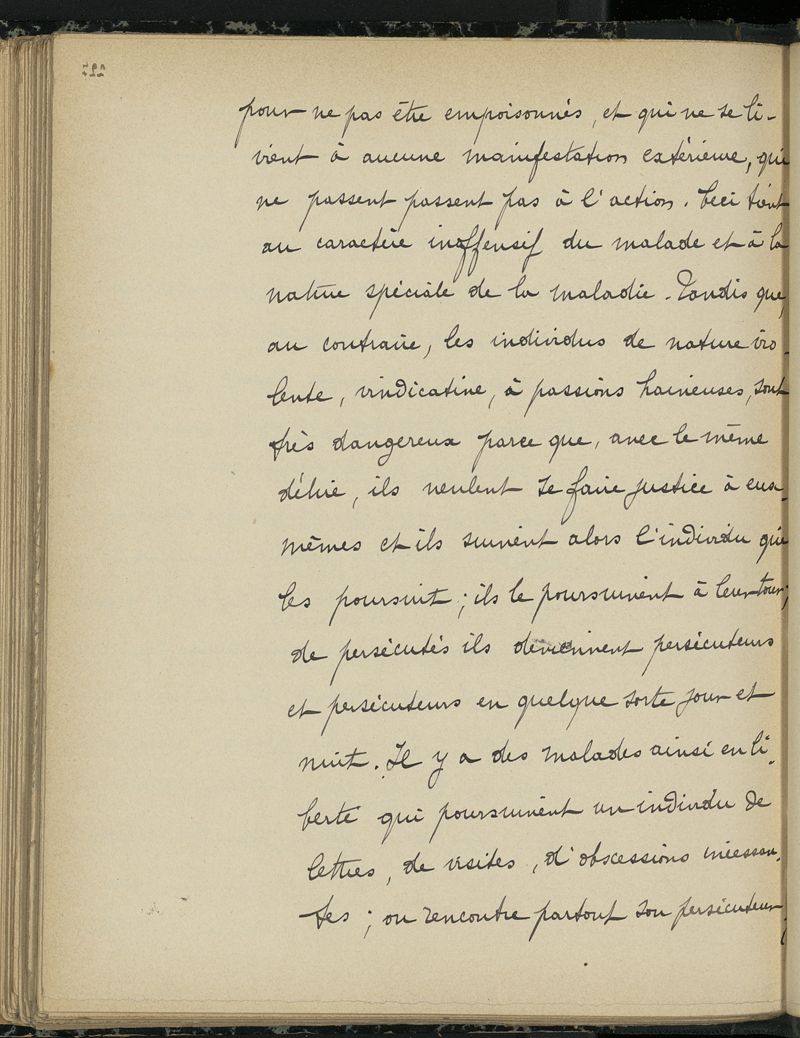 pour ne pas être empoisonnés, et qui ne se li-
vrent à aucune manifestation extérieure, qui
ne passent passent pas à l'action. Ceci tient
au caractère inoffensif du malade et à la
nature spéciale de la maladie. Tandis que,
au contraire, les individus de nature vio-
lente, vindicative, à passions haineuses, sont
très dangereux parce que, avec le même
délire, ils veulent se faire justice à eux-
mêmes et ils suivent alors l'individu qui
les poursuit; ils le poursuivent à leur tour;
de persécutés ils deviennent persécuteurs
et persécuteurs en quelque sorte jour et
nuit. Il y a des malades ainsi en li-
berté qui poursuivent un individu de
lettres, de visites, d'obscessions incessan-
tes; on rencontre partout son persécuteur